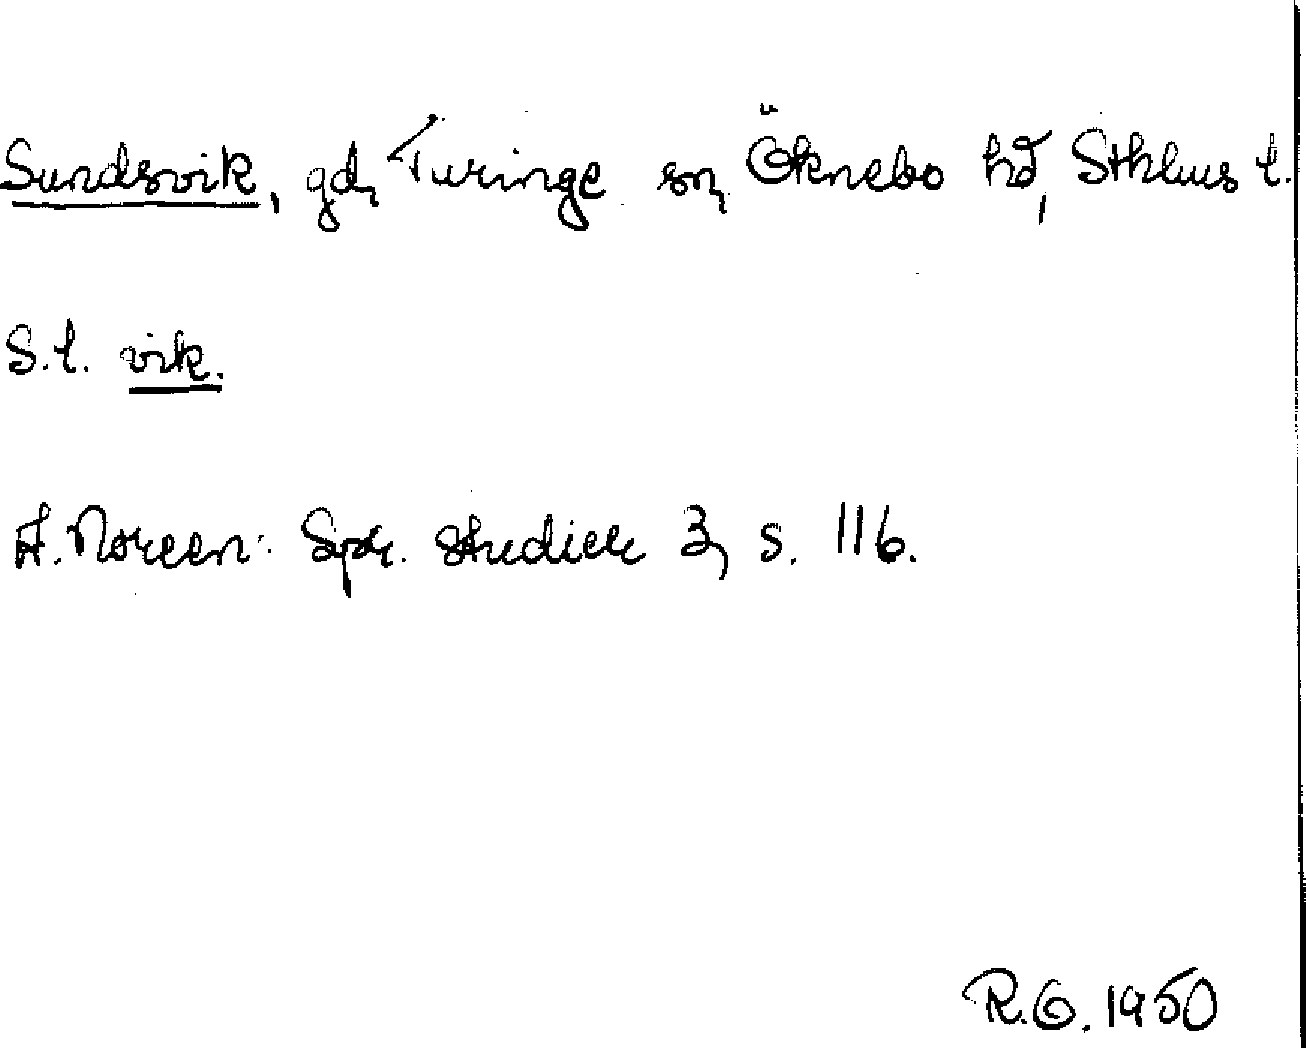 Sundsvik, gd, Turinge sn, Öknebo hd, Sthlms l.
S.l. vik.
A. Noreen: Spr. studier 3, s. 116.
R.G. 1950